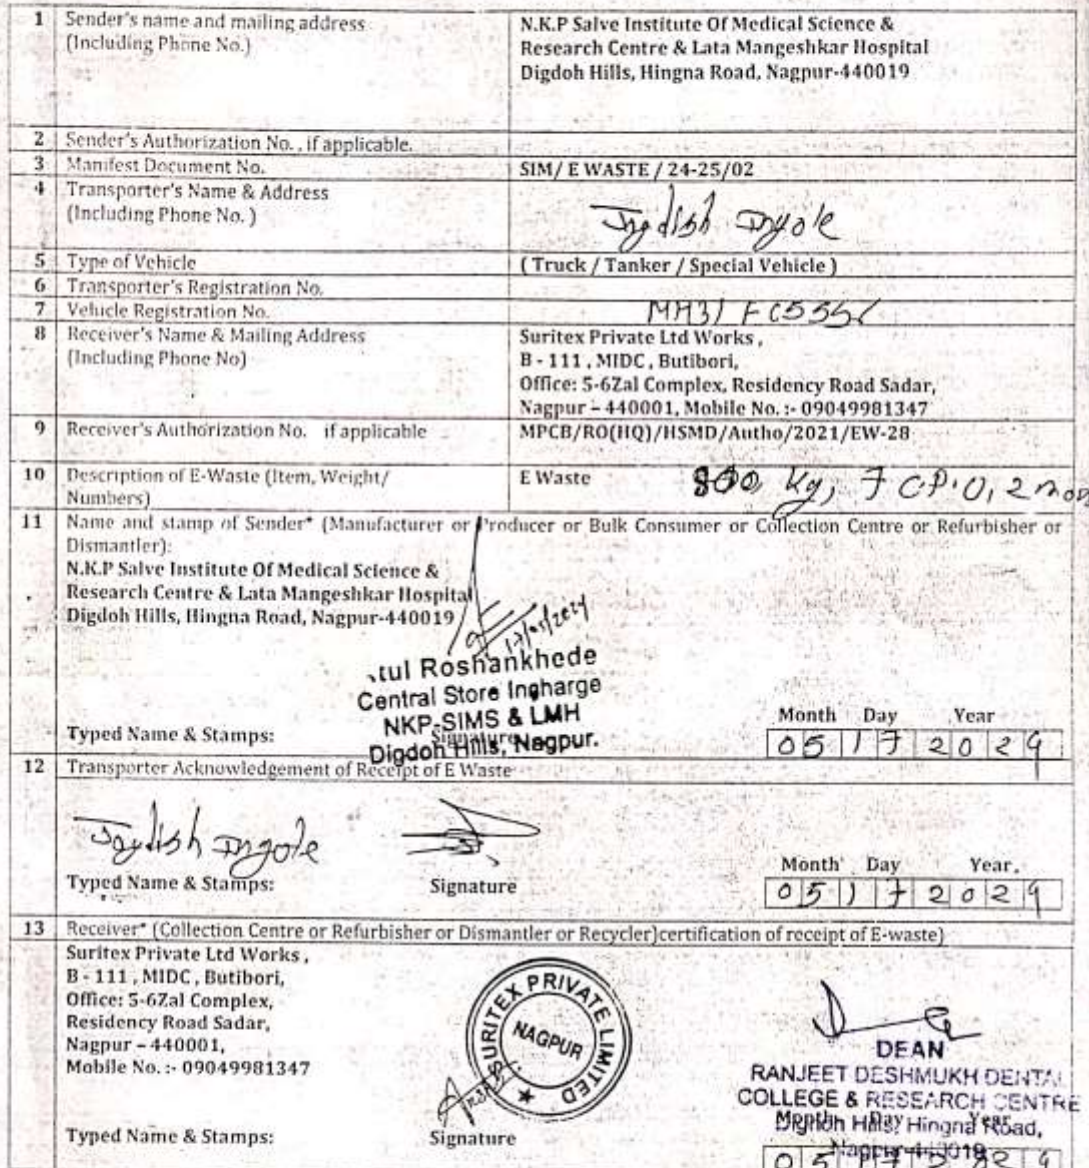 1 Sender's name and mailing address
(Including Phone No.)
N.K.P Salve Institute Of Medical Science &
Research Centre & Lata Mangeshkar Hospital
Digdoh Hills, Hingna Road, Nagpur-440019
2 Sender's Authorization No. , if applicable.
3 Manifest Document No. SIM/ E WASTE / 24-25/02
4 Transporter's Name & Address
(Including Phone No. )
Ingole
5 Type of Vehicle ( Truck / Tanker / Special Vehicle )
6 Transporter's Registration No.
7 Vehicle Registration No. MH31
8 Receiver's Name & Mailing Address
(Including Phone No)
Suritex Private Ltd Works ,
B - 111 , MIDC , Butibori,
Office: 5-6Zal Complex, Residency Road Sadar,
Nagpur – 440001, Mobile No. :- 09049981347
9 Receiver's Authorization No. if applicable MPCB/RO(HQ)/HSMD/Autho/2021/EW-28
10 Description of E-Waste (Item, Weight/
Numbers)
E Waste Kg, 7 C.P.U, 2
11 Name and stamp of Sender* (Manufacturer or Producer or Bulk Consumer or Collection Centre or Refurbisher or
Dismantler):
N.K.P Salve Institute Of Medical Science &
Research Centre & Lata Mangeshkar Hospital
Digdoh Hills, Hingna Road, Nagpur-440019
17/05/2024
tul Roshankhede
Central Store Incharge
NKP-SIMS & LMH
Digdoh Hills, Nagpur.
Typed Name & Stamps: Signature
Month Day Year
05 17 2024
12 Transporter Acknowledgement of Receipt of E Waste
Ingole
Typed Name & Stamps: Signature
Month Day Year
05 17 2024
13 Receiver* (Collection Centre or Refurbisher or Dismantler or Recycler)certification of receipt of E-waste)
Suritex Private Ltd Works ,
B - 111 , MIDC , Butibori,
Office: 5-6Zal Complex,
Residency Road Sadar,
Nagpur – 440001,
Mobile No. :- 09049981347
SURITEX PRIVATE LIMITED
NAGPUR
DEAN
RANJEET DESHMUKH DENTAL
COLLEGE & RESEARCH CENTRE
Digdoh Hills, Hingna Road,
Month Day Year
Typed Name & Stamps: Signature